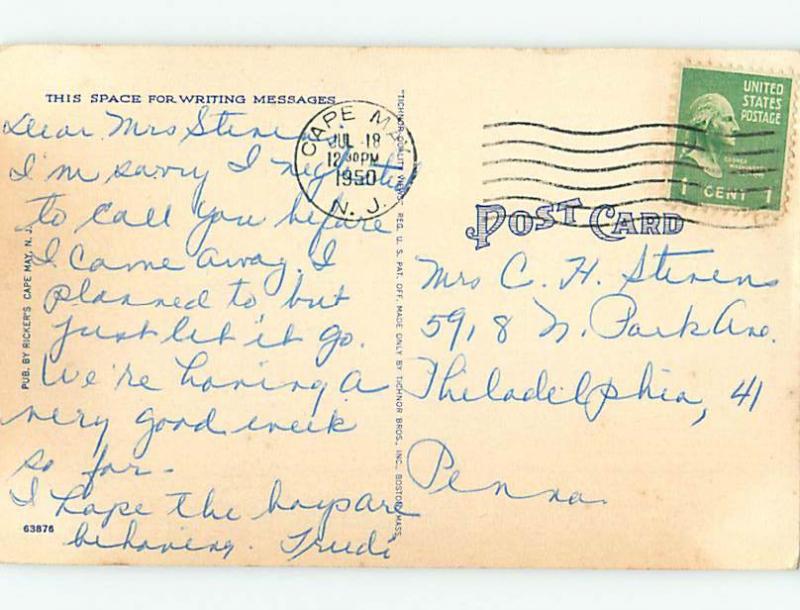 THIS SPACE FOR WRITING MESSAGES
Dear Mrs Stevens
I'm sorry I neglected
to call you before
I came away. I
planned to but
just let it go.
We're having a
very good week
so far -
I hope the boys are
behaving. Trudi
63876
PUB. BY RICKER'S CAPE MAY, N. J.
"TICHNOR QUALITY VIEWS," REG. U. S. PAT. OFF. MADE ONLY BY TICHNOR BROS., INC., BOSTON, MASS.
CAPE MAY
JUL 18
12 30 PM
1950
N. J.
UNITED
STATES
POSTAGE
1 CENT 1
POST CARD
Mrs C. H. Stevens
5918 N. Park Ave.
Philadelphia, 41
Penna.